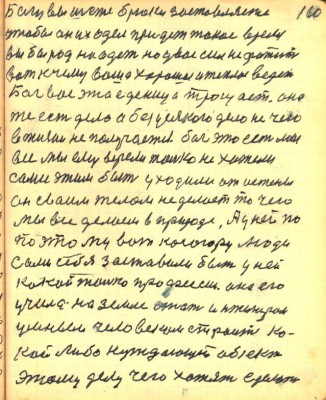 160
Богу вы тоже брюки заставляете
чтобы он их одел придет такое время
вы бы рад на одет но у вас сил не хатит
вот к чему ваша хороша и тепла ведет
Бог вас эта еденица трогует. она
же ест дело а без всякого дело не чего
в жизни не получается. бог это ест мы
все мы ему верели только не хотели
сами этим быт уходили от истены
он своим телом не делает то чего
мы все делаем в природе. А у ней по
поэтому вот кого горы люди
сами себя заставили быт у ней
какой только професеи. она его
учила на земле стат и инженером
умным человеком строит ка-
кой либо нуждающий обект
этому делу чего хотят сделат